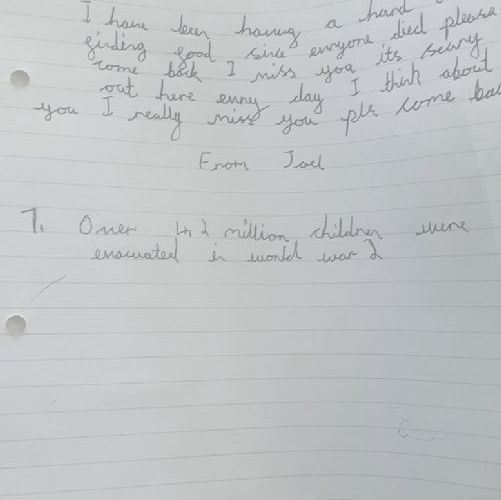 I have been having a hard
finding food since everyone died please
come back I miss you its scary
out here evry day I think about
you I really miss you pls come bac
From Joel
1. Over 2 million children were
evacuated in world war 2